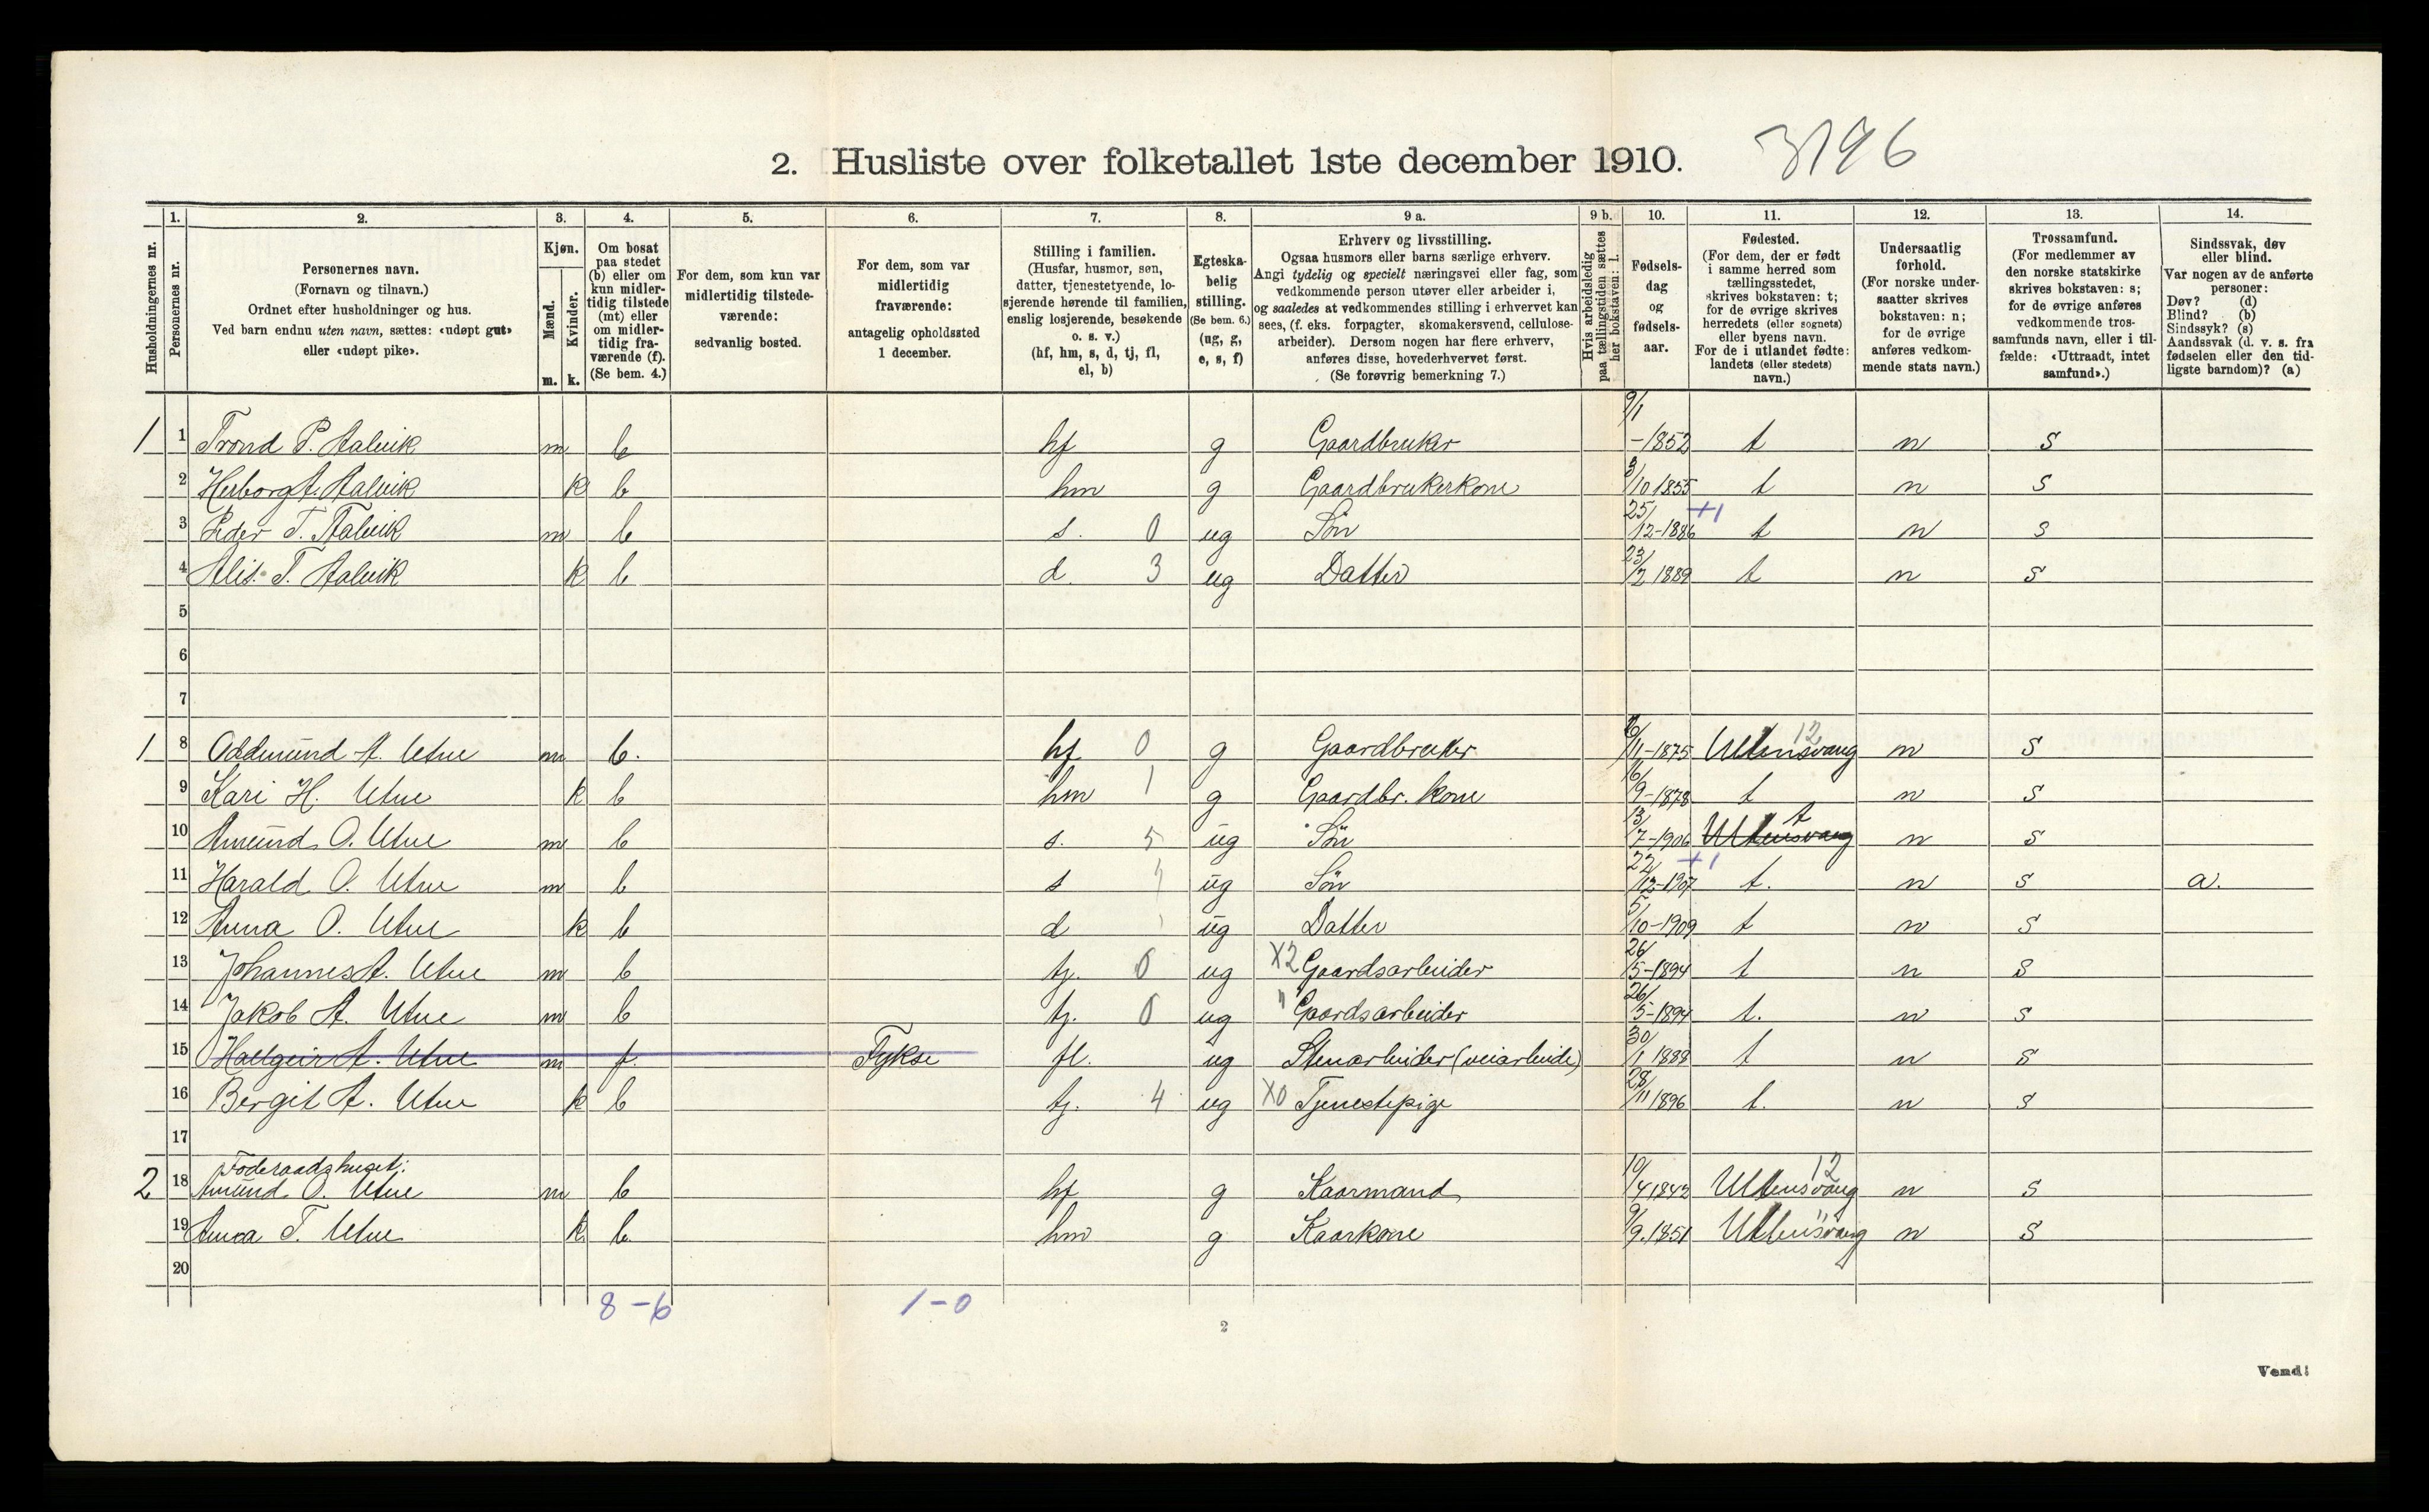 2. Husliste over folketallet 1ste december 1910. 3196
Husholdningernes nr.
1. Personernes nr.
2. Personernes navn.
(Fornavn og tilnavn.)
Ordnet efter husholdninger og hus.
Ved barn endnu uten navn, sættes: «udøpt gut»
eller «udøpt pike».
3. Kjøn.
Mænd. m.
Kvinder. k.
4. Om bosat
paa stedet
(b) eller om
kun midler-
tidig tilstede
(mt) eller
om midler-
tidig fra-
værende (f).
(Se bem. 4.)
5. For dem, som kun var
midlertidig tilstede-
værende:
sedvanlig bosted.
6. For dem, som var
midlertidig
fraværende:
antagelig opholdssted
1 december.
7. Stilling i familien.
(Husfar, husmor, søn,
datter, tjenestetyende, lo-
sjerende hørende til familien,
enslig losjerende, besøkende
o. s. v.)
(hf, hm, s, d, tj, fl,
el, b)
8. Egteska-
belig
stilling.
(Se bem. 6.)
(ug, g,
e, s, f)
9 a. Erhverv og livsstilling.
Ogsaa husmors eller barns særlige erhverv.
Angi tydelig og specielt næringsvei eller fag, som
vedkommende person utøver eller arbeider i,
og saaledes at vedkommendes stilling i erhvervet kan
sees, (f. eks. forpagter, skomakersvend, cellulose-
arbeider). Dersom nogen har flere erhverv,
anføres disse, hovederhvervet først.
(Se forøvrig bemerkning 7.)
9 b. Hvis arbeidsledig
paa tællingstiden sættes
her bokstaven: l.
10. Fødsels-
dag
og
fødsels-
aar.
11. Fødested.
(For dem, der er født
i samme herred som
tællingsstedet,
skrives bokstaven: t;
for de øvrige skrives
herredets (eller sognets)
eller byens navn.
For de i utlandet fødte:
landets (eller stedets)
navn.)
12. Undersaatlig
forhold.
(For norske under-
saatter skrives
bokstaven: n;
for de øvrige
anføres vedkom-
mende stats navn.)
13. Trossamfund.
(For medlemmer av
den norske statskirke
skrives bokstaven: s;
for de øvrige anføres
vedkommende tros-
samfunds navn, eller i til-
fælde: «Uttraadt, intet
samfund».)
14. Sindssvak, døv
eller blind.
Var nogen av de anførte
personer:
Døv? (d)
Blind? (b)
Sindssyk? (s)
Aandssvak (d. v. s. fra
fødselen eller den tid-
ligste barndom)? (a)
1 1 Trond P. Aalvik m b hf g Gaardbruker 9/1 -1852 t n s
2 Herborg A. Aalvik k b hm g Gaardbrukerkone 3/10 1855 t n s
3 Peder T. Aalvik m b s. 0 ug Søn 25/12-1886 +1 t n s
4 Alis T. Aalvik k b d. 3 ug Datter 23/2 1889 t n s
5
6
7
1 8 Oddmund A. Utne m b. hf 0 g Gaardbruker /11-1875 Ullensvang 12 n s
9 Kari H. Utne k b hm 1 g Gaardbr. kone 16/9-1878 t n s
10 Amund O. Utne m b s. 5 ug Søn 13/7-1906 Ullensvang t n s
11 Harald O. Utne m b s ug Søn 22/12-1907 +1 t. n s a.
12 Anna O. Utne k b d ug Datter 5/10-1909 t n s
13 Johannes A. Utne m b tj. 0 ug X2 Gaardsarbeider 26/5-1894 t n s
14 Jakob A. Utne m b tj. 0 ug " Gaardsarbeider 26/5-1894 t. n s
15 Hallgeir A. Utne m f. Fykse fl. ug Stenarbeider (veiarbeide) 30/1 1888 t n s
16 Bergit A. Utne k b tj. 4 ug X0 Tjenestepige 28/11 1896 t. n s
17
Føderaadshuset:
2 18 Amund O. Utne m b hf g Kaarmand 10/4 1842 Ullensvang 12 n s
19 Anna T. Utne k b. hm g Kaarkone 9/9. 1851 Ullensvang " n s
20
8-6 1-0
2
Vend!